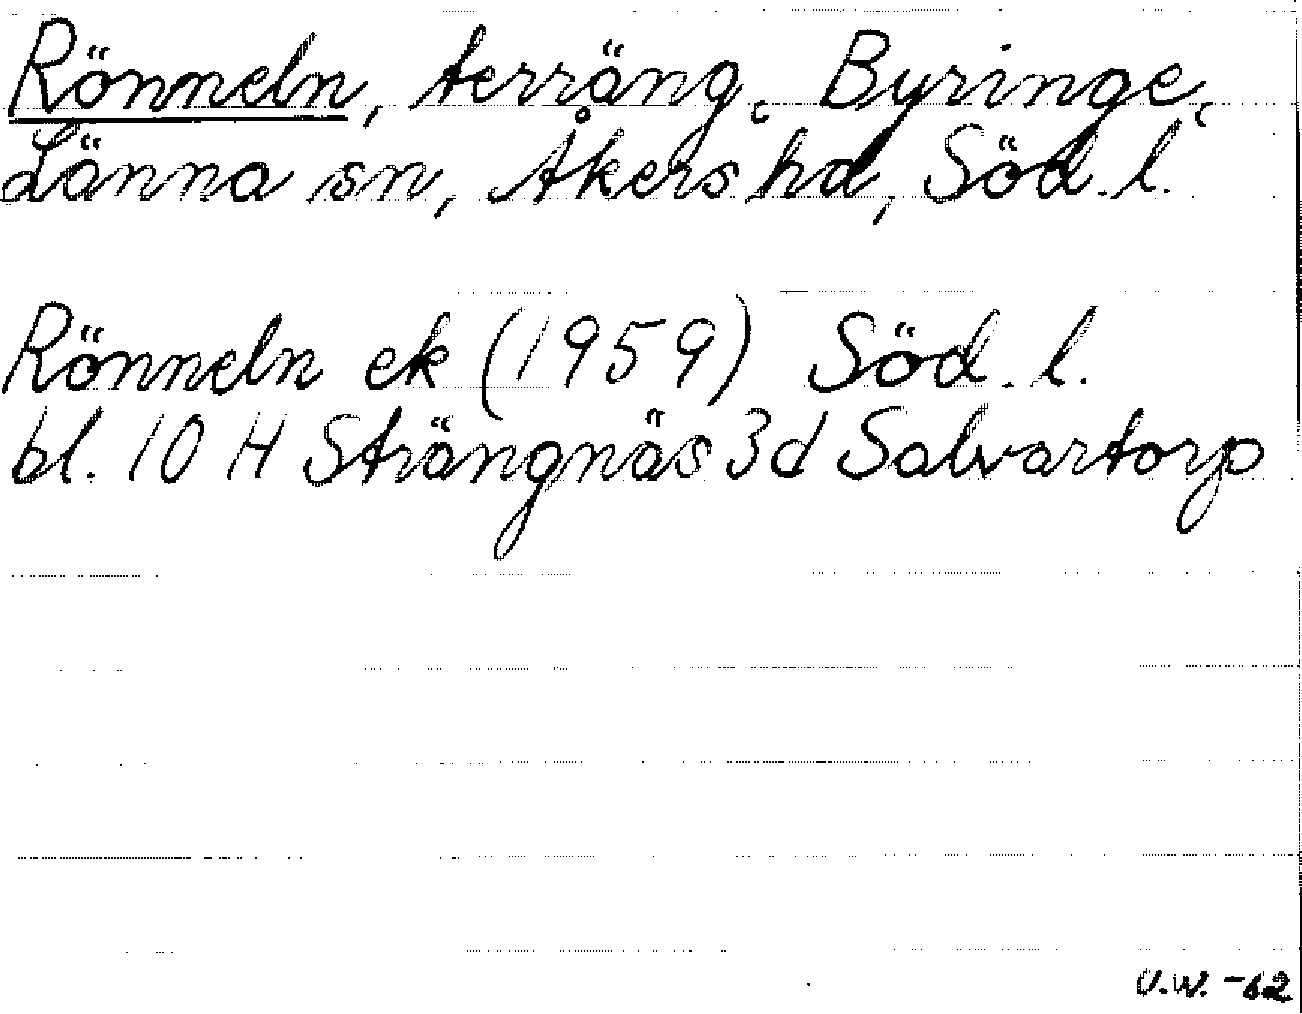 Rönneln, terräng, Byringe,
Länna sn, Åkers hd, Söd. l.
Rönneln ek (1959) Söd. l.
bl. 10 H Strängnäs 3d Salvartorp
U.W. -62